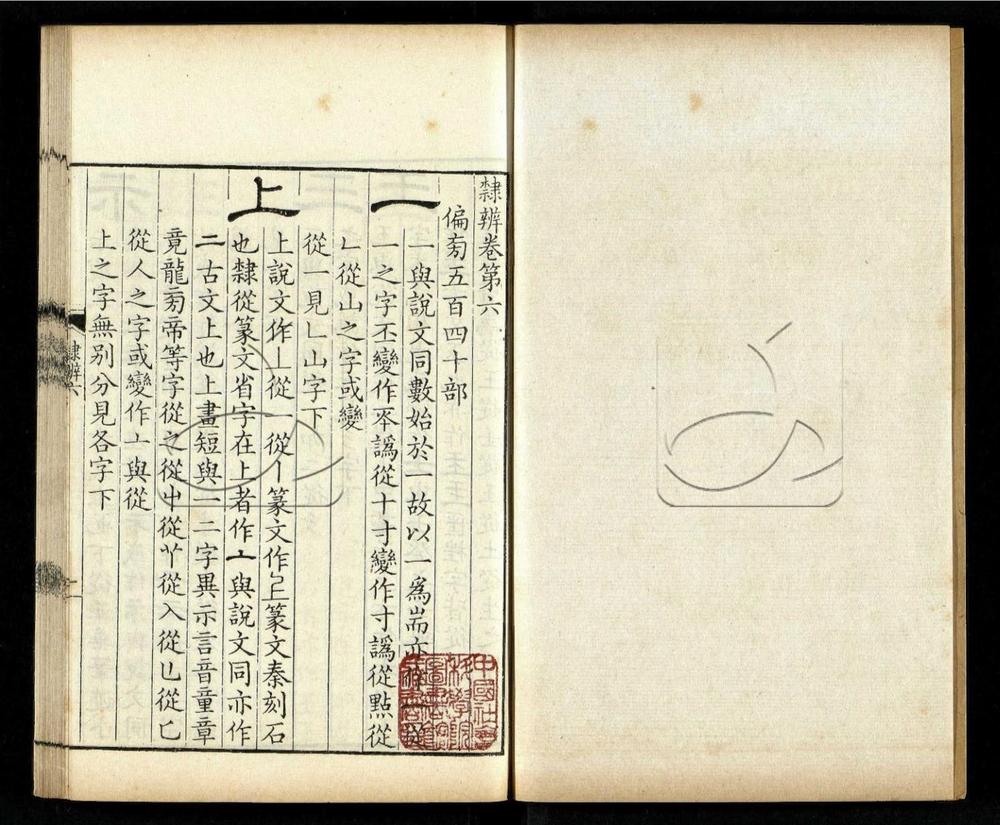 隸辨卷第六
偏㫄五百四十部
一
一與說文同數始於一故以一爲耑亦從
一之字丕變作㔻譌從十寸變作寸譌從點從
𠃊從山之字或變
從一見𠃊山字下
上
上說文作丄從一從丨篆文作𠄞篆文秦刻石
也隸從篆文省字在上者作亠與說文同亦作
二古文上也上畫短與一二字異示言音童章
竟龍㫄帝等字從之從屮從艹從入從㔾從匕
從人之字或變作亠與從
上之字無别分見各字下
隸辨六
中國社會科學院圖書館